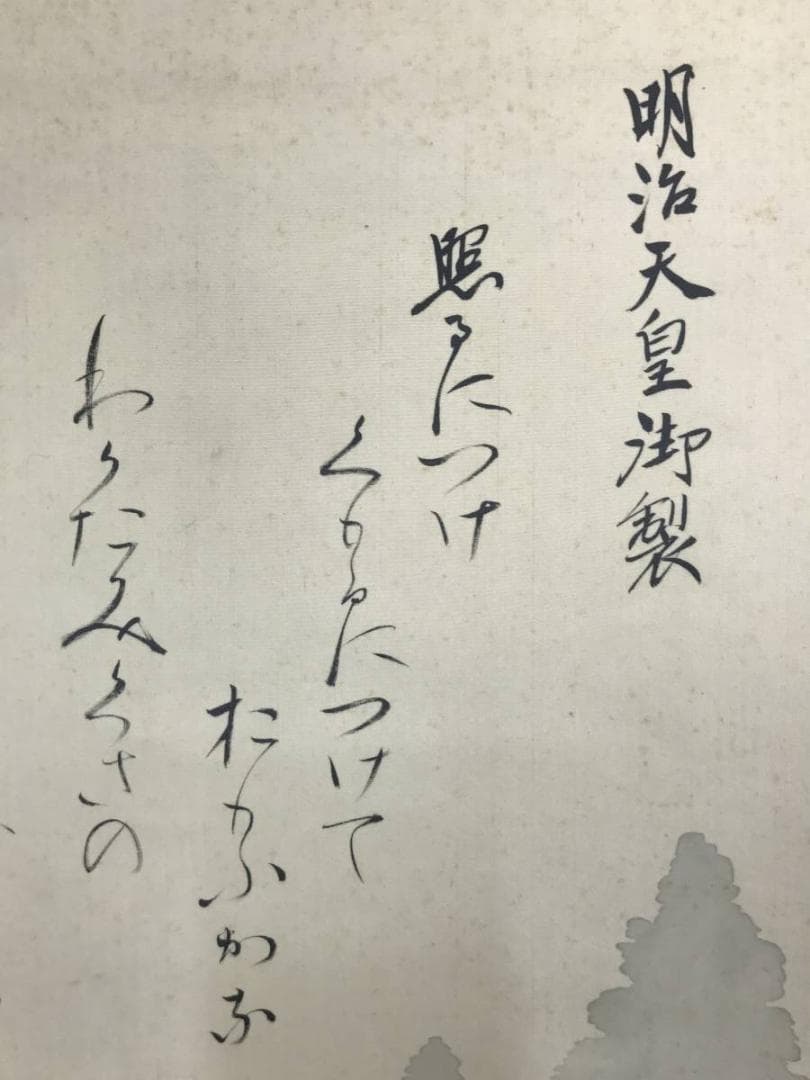 明治天皇御製
照るにつけ
くもるにつけて
おもふかな
わかたみくさの